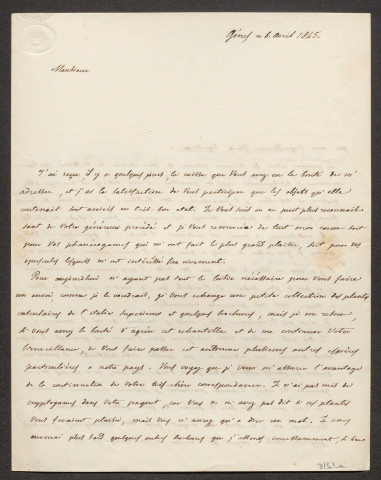 Gênes ce 6. Avril 1845.
Monsieur
J'ai reçu, il y a quelques jours, la caisse que Vous avez eu la bonté de m'
adresser, et j'ai la satisfaction de Vous participer que les objets qu'elle
contenait sont arrivés en très bon état. Je Vous suis on ne peut plus reconnais-
sant de Votre généreux procédé et je Vous remercie de tout mon coeur tant
pour Vos phanérogames qui m'ont fait le plus grand plaisir, que pour vos
opuscules lesquels m'ont intéressé bien vivement.
Pour aujourd'hui n'ayant pas tout le loisir nécessaire pour Vous faire
un envoi comme je le voudrais, je Vous échange une petite collection des plantes
vasculaires de l'Italie supérieure et quelques bochons, mais je me retiens,
si Vous avez la bonté d'agréer cet échantillon et de me continuer Votre
bienveillance, de Vous faire passer cet automne plusieurs autres espèces
particulières à notre pays. Vous voyez que je veux m'assurer l'avantage
de la continuation de Votre très chère correspondance. Je n'ai pas mis de
cryptogames dans Votre paquet, car Vous ne m'avez pas dit si ces plantes
Vous feraient plaisir, mais Vous n'aurez qu'à dire un mot. Je Vous
enverrai plus tard quelques autres bochons que j'attends incessamment, je Vous